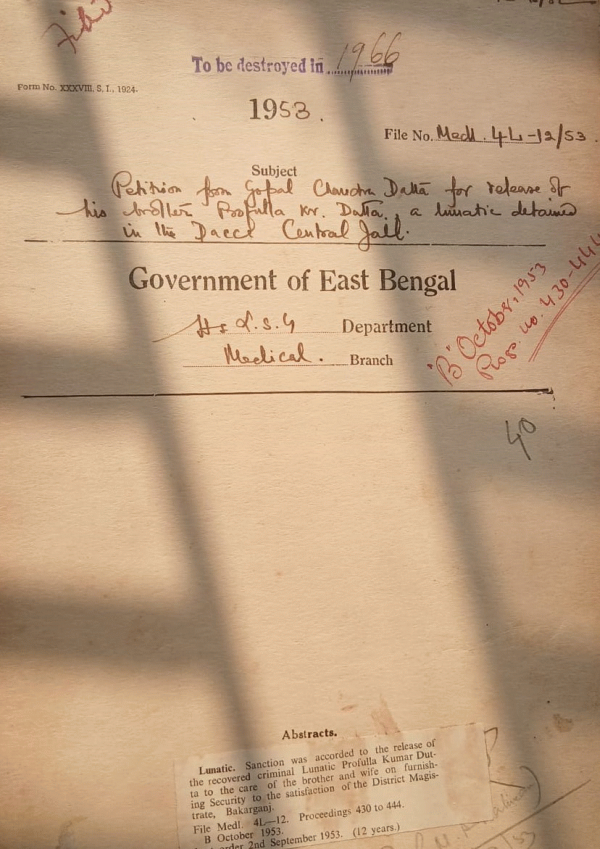 File
To be destroyed in 1966
Form No. XXXVIII, S. I., 1924.
1953.
File No. Medl. 4L-12/53.
Subject
Petition from Gopal Chandra Datta for release of
his brother Profulla Kr. Datta, a lunatic detained
in the Dacca Central Jail.
Government of East Bengal
H & L.S.G Department
Medical. Branch
'B' October, 1953
Prog. no. 430-444
40
Abstracts.
Lunatic. Sanction was accorded to the release of
the recovered criminal Lunatic Profulla Kumar Dut-
ta to the care of the brother and wife on furnish-
ing Security to the satisfaction of the District Magis-
trate, Bakarganj.
File Medl. 4L—12. Proceedings 430 to 444.
B October 1953.
order 2nd September 1953. (12 years.)